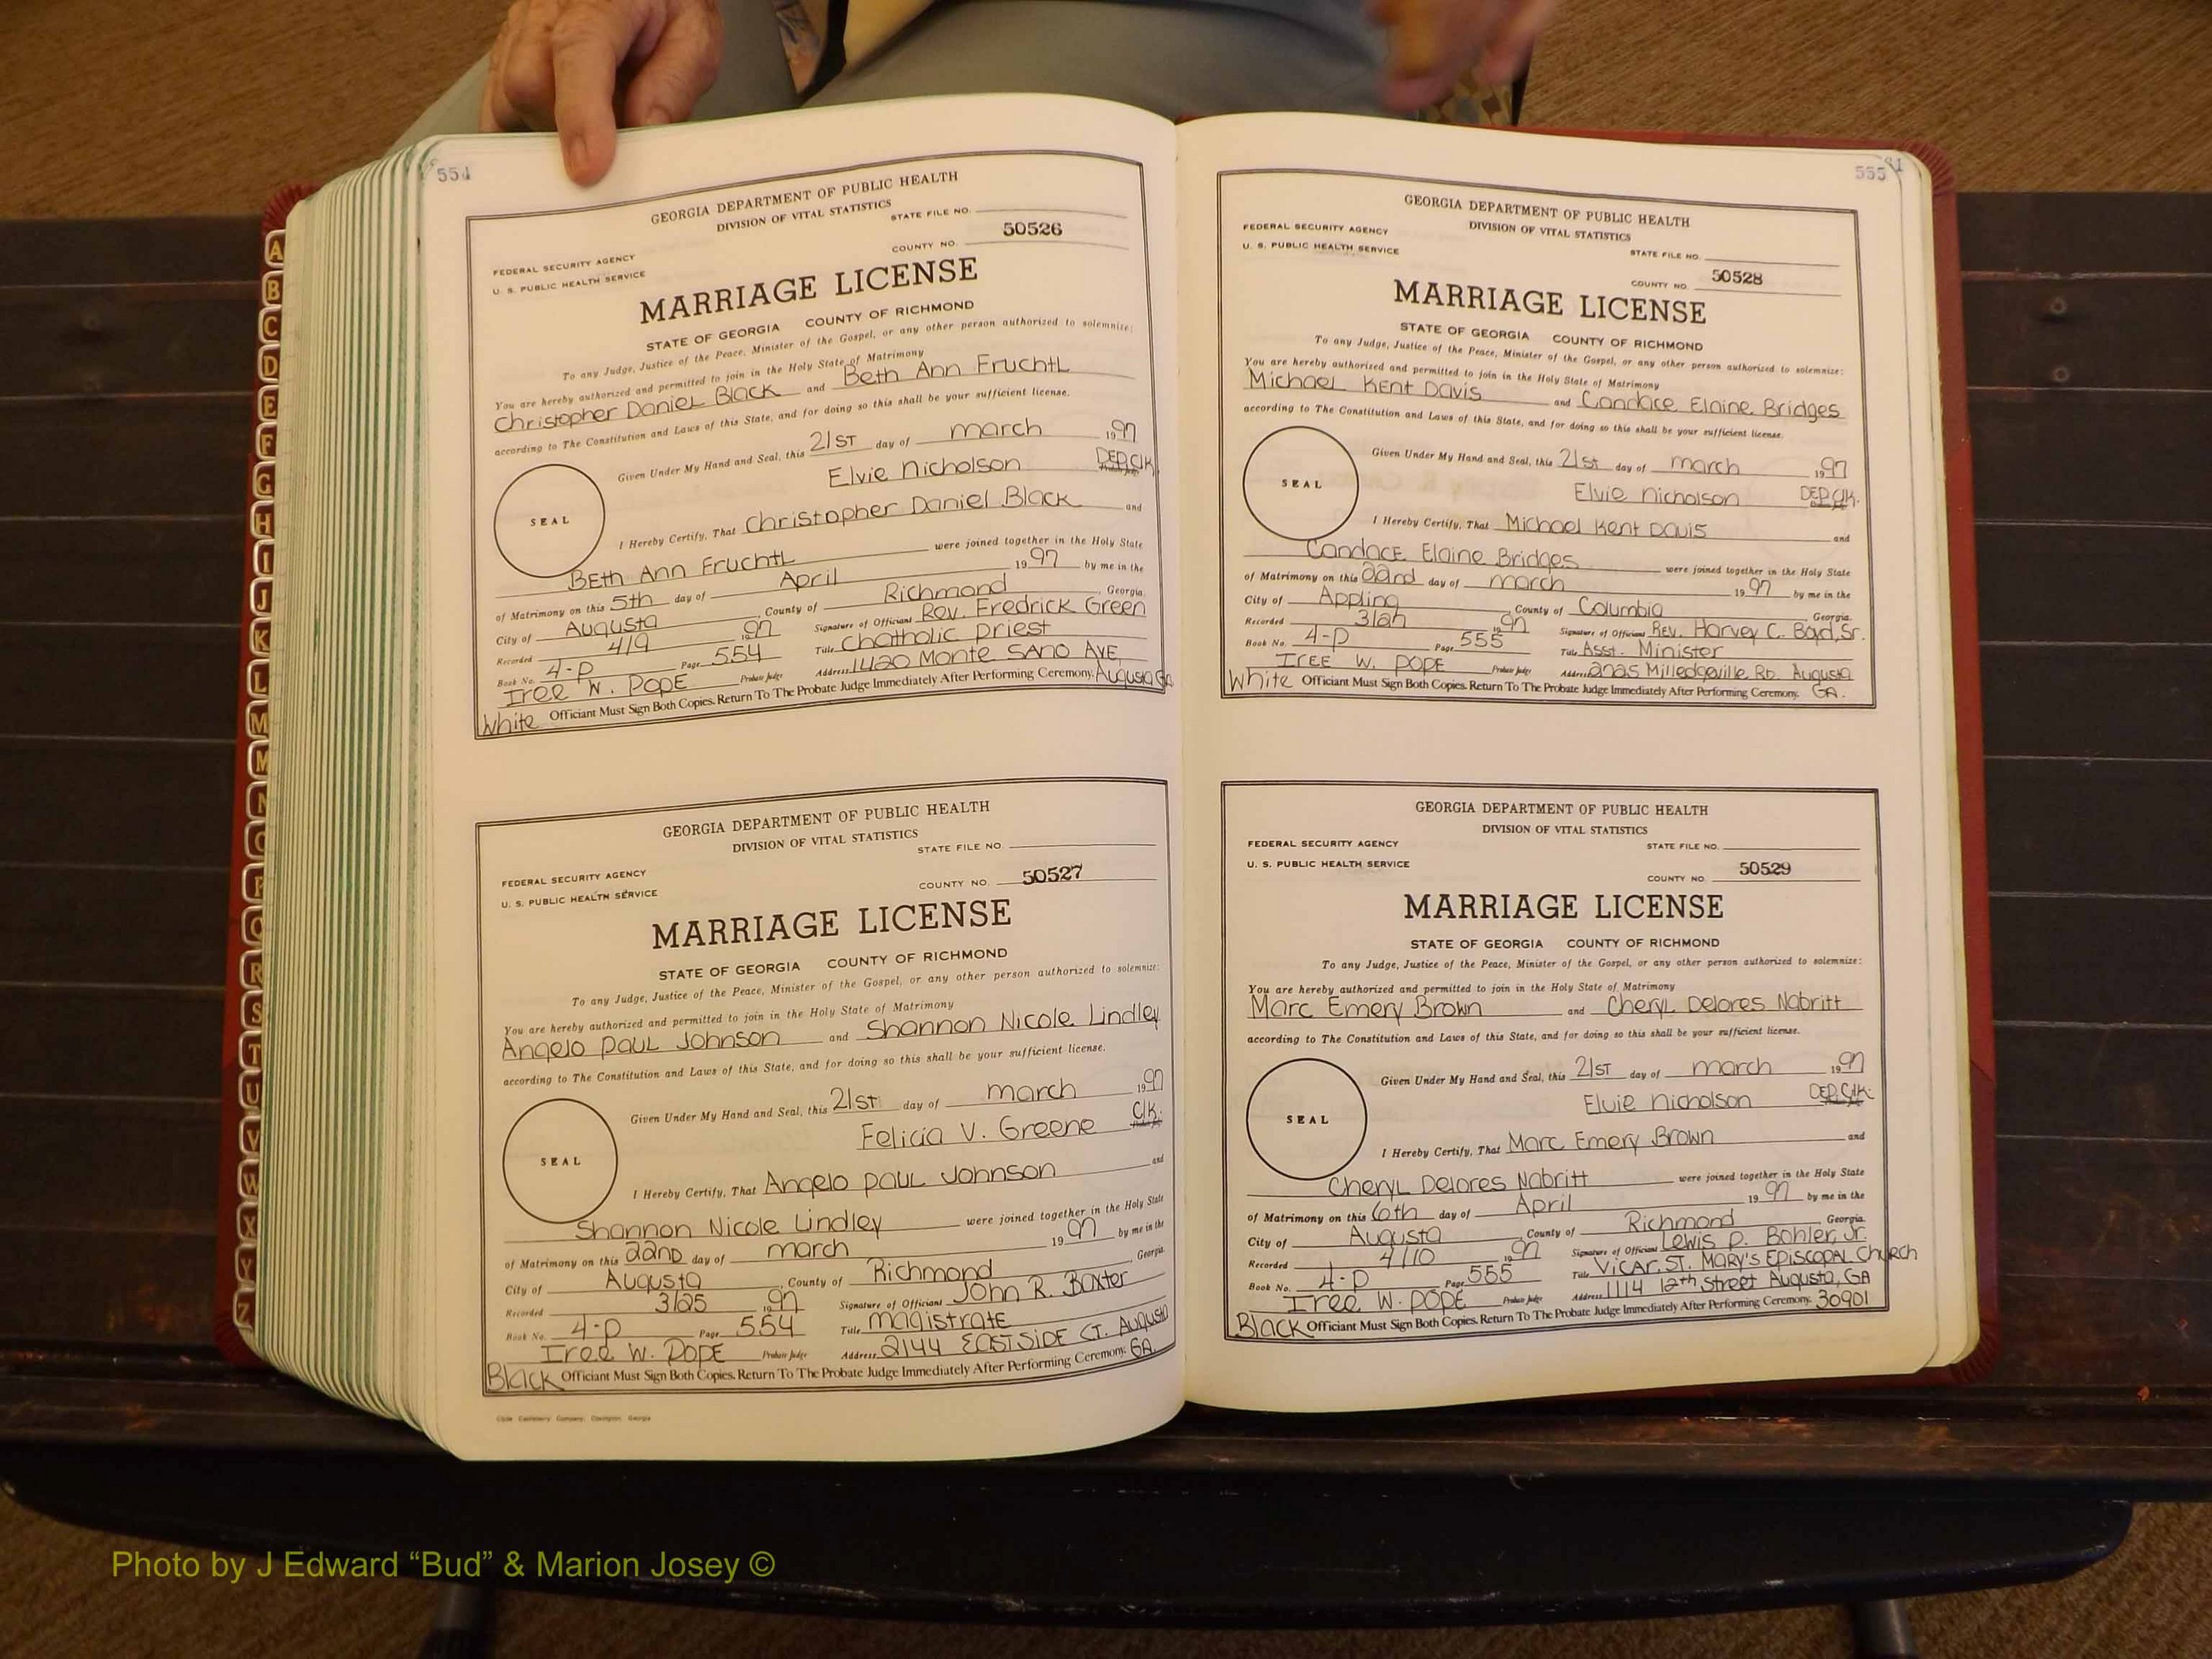 554
GEORGIA DEPARTMENT OF PUBLIC HEALTH
DIVISION OF VITAL STATISTICS
STATE FILE NO.
FEDERAL SECURITY AGENCY
U. S. PUBLIC HEALTH SERVICE
COUNTY NO. 50526
MARRIAGE LICENSE
STATE OF GEORGIA COUNTY OF RICHMOND
To any Judge, Justice of the Peace, Minister of the Gospel, or any other person authorized to solemnize:
You are hereby authorized and permitted to join in the Holy State of Matrimony
Christopher Daniel Black and Beth Ann Fruchtl
according to The Constitution and Laws of this State, and for doing so this shall be your sufficient license.
Given Under My Hand and Seal, this 21st day of March 1997
Elvie Nicholson DEP. Clk.
SEAL
I Hereby Certify, That Christopher Daniel Black and
Beth Ann Fruchtl were joined together in the Holy State
of Matrimony on this 5th day of April 1997 by me in the
City of Augusta, County of Richmond, Georgia.
Recorded 4/9 1997 Signature of Officiant Rev. Fredrick Green
Book No. 4-P Page 554 Title Chatholic Priest
Iree W. Pope Probate Judge Address 1420 Monte Sano Ave
White Officiant Must Sign Both Copies. Return To The Probate Judge Immediately After Performing Ceremony. Augusta Ga
GEORGIA DEPARTMENT OF PUBLIC HEALTH
DIVISION OF VITAL STATISTICS
STATE FILE NO.
FEDERAL SECURITY AGENCY
U. S. PUBLIC HEALTH SERVICE
COUNTY NO. 50527
MARRIAGE LICENSE
STATE OF GEORGIA COUNTY OF RICHMOND
To any Judge, Justice of the Peace, Minister of the Gospel, or any other person authorized to solemnize:
You are hereby authorized and permitted to join in the Holy State of Matrimony
Angelo Paul Johnson and Shannon Nicole Lindley
according to The Constitution and Laws of this State, and for doing so this shall be your sufficient license.
Given Under My Hand and Seal, this 21st day of March 1997
Felicia V. Greene Clk.
SEAL
I Hereby Certify, That Angelo Paul Johnson and
Shannon Nicole Lindley were joined together in the Holy State
of Matrimony on this 22nd day of March 1997 by me in the
City of Augusta, County of Richmond, Georgia.
Recorded 3/25 1997 Signature of Officiant John R. Baxter
Book No. 4-P Page 554 Title Magistrate
Iree W. Pope Probate Judge Address 2144 Eastside Ct. Augusta
Black Officiant Must Sign Both Copies. Return To The Probate Judge Immediately After Performing Ceremony. GA.
555
GEORGIA DEPARTMENT OF PUBLIC HEALTH
DIVISION OF VITAL STATISTICS
FEDERAL SECURITY AGENCY
U. S. PUBLIC HEALTH SERVICE
STATE FILE NO.
COUNTY NO. 50528
MARRIAGE LICENSE
STATE OF GEORGIA COUNTY OF RICHMOND
To any Judge, Justice of the Peace, Minister of the Gospel, or any other person authorized to solemnize:
You are hereby authorized and permitted to join in the Holy State of Matrimony
Michael Kent Davis and Candace Elaine Bridges
according to The Constitution and Laws of this State, and for doing so this shall be your sufficient license.
Given Under My Hand and Seal, this 21st day of March 1997
Elvie Nicholson DEP. Clk.
SEAL
I Hereby Certify, That Michael Kent Davis and
Candace Elaine Bridges were joined together in the Holy State
of Matrimony on this 22nd day of March 1997 by me in the
City of Appling, County of Columbia, Georgia.
Recorded 1997 Signature of Officiant Rev. Harvey C. Boyd, Sr.
Book No. 4-P Page 555 Title Asst. Minister
Iree W. Pope Probate Judge Address 2025 Milledgeville Rd. Augusta
White Officiant Must Sign Both Copies. Return To The Probate Judge Immediately After Performing Ceremony. GA.
GEORGIA DEPARTMENT OF PUBLIC HEALTH
DIVISION OF VITAL STATISTICS
FEDERAL SECURITY AGENCY
STATE FILE NO.
U. S. PUBLIC HEALTH SERVICE
COUNTY NO. 50529
MARRIAGE LICENSE
STATE OF GEORGIA COUNTY OF RICHMOND
To any Judge, Justice of the Peace, Minister of the Gospel, or any other person authorized to solemnize:
You are hereby authorized and permitted to join in the Holy State of Matrimony
Marc Emery Brown and Cheryl Delores Nabritt
according to The Constitution and Laws of this State, and for doing so this shall be your sufficient license.
Given Under My Hand and Seal, this 21st day of March 1997
Elvie Nicholson DEP. Clk.
SEAL
I Hereby Certify, That Marc Emery Brown and
Cheryl Delores Nabritt were joined together in the Holy State
of Matrimony on this 6th day of April 1997 by me in the
City of Augusta, County of Richmond, Georgia.
Recorded 4/10 1997 Signature of Officiant Lewis P. Bohler, Jr.
Book No. 4-P Page 555 Title Vicar, St. Mary's Episcopal Church
Iree W. Pope Probate Judge Address 1114 12th Street Augusta, GA
Black Officiant Must Sign Both Copies. Return To The Probate Judge Immediately After Performing Ceremony. 30901
A
B
C
D
E
F
G
H
I
J
K
L
M
M
N
O
P
Q
R
S
T
U
V
W
X
Y
Z
Photo by J Edward “Bud” & Marion Josey ©